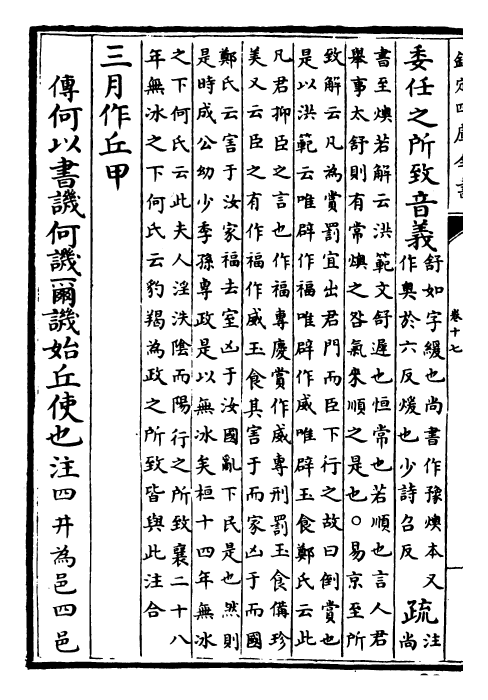 欽定四庫全書
卷十七
委任之所致音義
舒如字緩也尚書作豫燠本又
作奧於六反煖也少詩召反
疏
注
尚
書至燠若解云洪範文舒遲也恒常也若順也言人君
舉事太舒則有常燠之咎氣來順之是也○易京至所
致解云凡為賞罰宜出君門而臣下行之故曰倒賞也
是以洪範云唯辟作福唯辟作威唯辟玉食鄭氏云此
凡君抑臣之言也作福專慶賞作威專刑罰玉食備珍
美又云臣之有作福作威玉食其害于而家凶于而國
鄭氏云害于汝家福去室凶于汝國亂下民是也然則
是時成公幼少季孫專政是以無冰矣桓十四年無冰
之下何氏云此夫人淫泆陰而陽行之所致襄二十八
年無冰之下何氏云豹羯為政之所致皆與此注合
三月作丘甲
傳何以書譏何譏爾譏始丘使也注四井為邑四邑